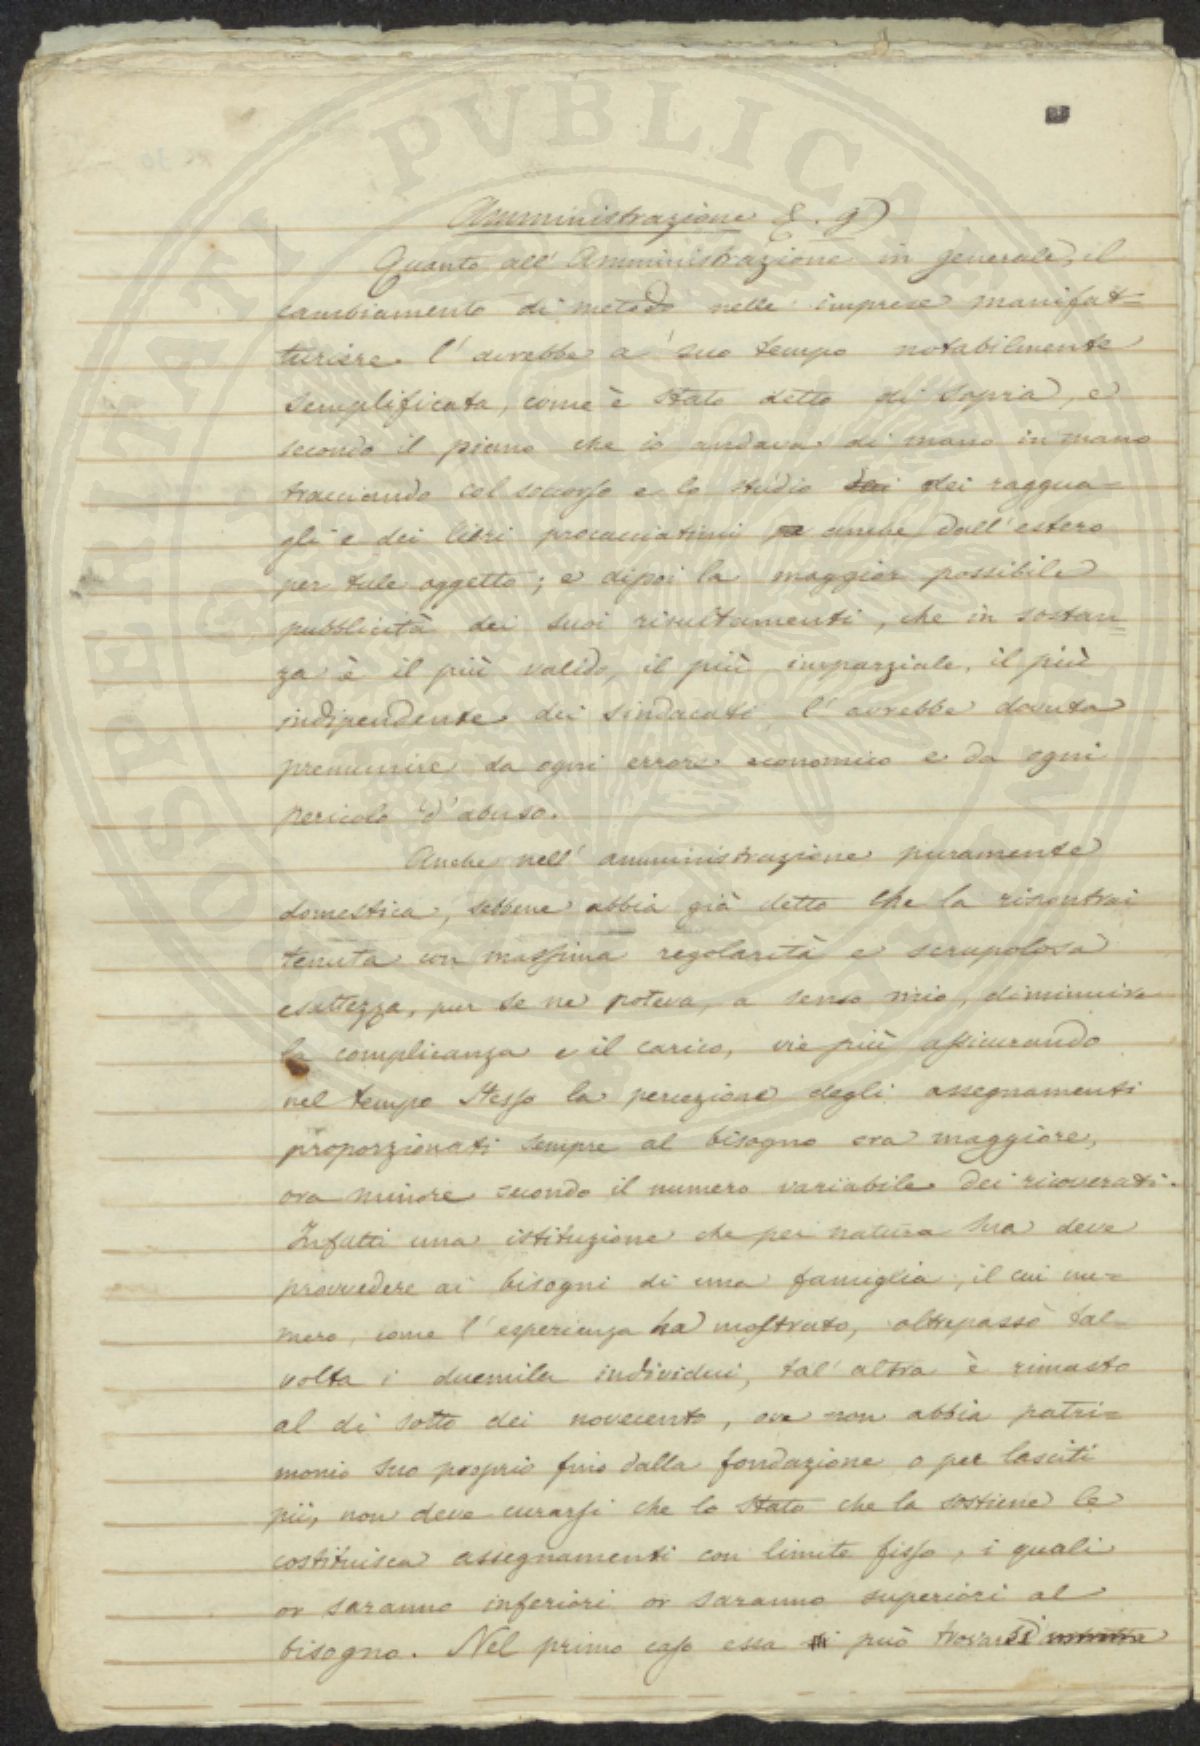 Amministrazione §. 9)
Quanto all' Amministrazione in generale, il
cambiamento di metodo nelle imprese manifat=
turiere l' avrebbe a suo tempo notabilmente
semplificata, come è stato detto di sopra, e
secondo il piano che io andava di mano in mano
tracciando col soccorso e lo studio dei raggua=
gli e dei libri procacciatimi anche dall' estero
per tale oggetto; e dipoi la maggior possibile
pubblicità dei suoi risultamenti, che in sostan=
za è il più valido, il più imparziale, il più
indipendente dei sindacati l' avrebbe dovuta
premunire da ogni errore economico e da ogni
pericolo d' abuso.
Anche nell' amministrazione puramente
domestica, sebbene abbia già detto che la riscontrai
tenuta con massima regolarità e scrupolosa
esattezza, pur se ne poteva, a senso mio, diminuire
la complicanza e il carico, vie più assicurando
nel tempo stesso la percezione degli assegnamenti
proporzionati sempre al bisogno ora maggiore,
ora minore secondo il numero variabile dei ricoverati.
Infatti una istituzione che per natura sua deve
provvedere ai bisogni di una famiglia, il cui nu=
mero, come l' esperienza ha mostrato, oltrepassò tal=
volta i duemila individui, tal' altra è rimasto
al di sotto dei novecento, ove non abbia patri=
monio suo proprio fino dalla fondazione o per lasciti
pii, non deve curarsi che lo Stato che la sostiene le
costituisca assegnamenti con limite fisso, i quali
or saranno inferiori or saranno superiori al
bisogno. Nel primo caso essa può trovarsi
PROSPERITATI PVBLICAE AVGENDAE